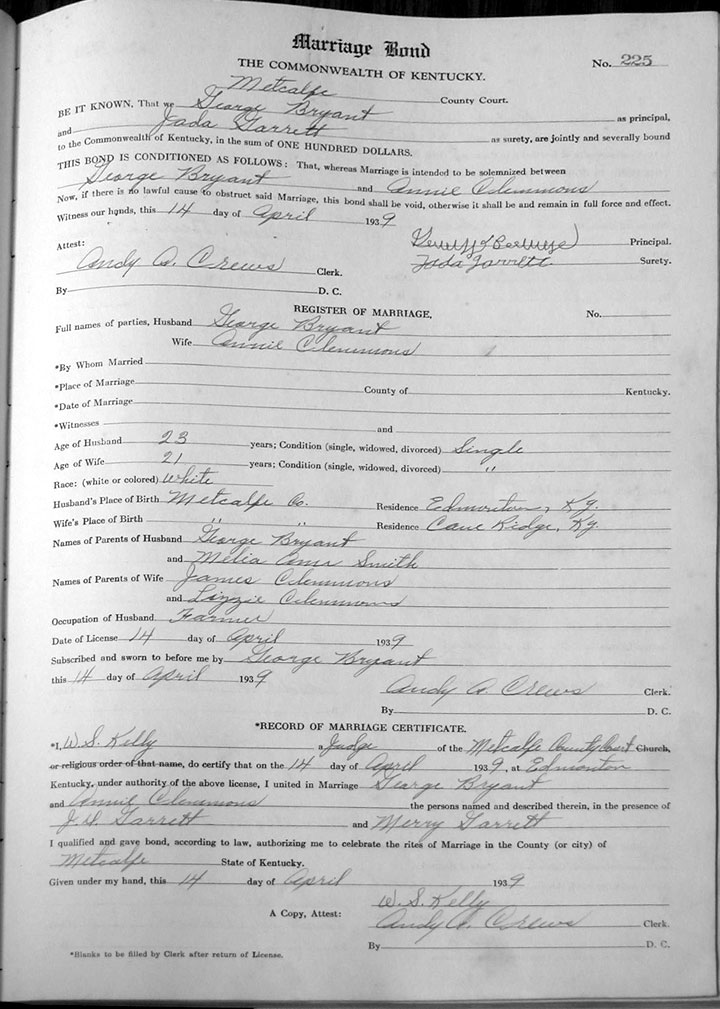 Marriage Bond
THE COMMONWEALTH OF KENTUCKY.
No. 225
Metcalfe County Court.
BE IT KNOWN, That we George Bryant as principal,
and Jada Garrett as surety, are jointly and severally bound
to the Commonwealth of Kentucky, in the sum of ONE HUNDRED DOLLARS.
THIS BOND IS CONDITIONED AS FOLLOWS: That, whereas Marriage is intended to be solemnized between
George Bryant and Annie Clemmons
Now, if there is no lawful cause to obstruct said Marriage, this bond shall be void, otherwise it shall be and remain in full force and effect.
Witness our hands, this 14 day of April 1939
Principal.
Attest:
Jada Garrett Surety.
Andy A. Crews Clerk.
By D. C.
REGISTER OF MARRIAGE,
No.
Full names of parties, Husband George Bryant
Wife Annie Clemmons
*By Whom Married
*Place of Marriage County of Kentucky.
*Date of Marriage
*Witnesses and
Age of Husband 23 years; Condition (single, widowed, divorced) Single
Age of Wife 21 years; Condition (single, widowed, divorced) "
Race: (white or colored) White
Husband's Place of Birth Metcalfe Co. Residence Edmonton, Ky.
Wife's Place of Birth " " Residence Cane Ridge, Ky.
Names of Parents of Husband George Bryant
and Melia Ann Smith
Names of Parents of Wife James Clemmons
and Lizzie Clemmons
Occupation of Husband Farmer
Date of License 14 day of April 1939
Subscribed and sworn to before me by George Bryant
this 14 day of April 1939
Andy A. Crews Clerk.
By D. C.
*RECORD OF MARRIAGE CERTIFICATE.
*I, W. S. Kelly a Judge of the Metcalfe County Court Church,
or religious order of that name, do certify that on the 14 day of April 1939, at Edmonton
Kentucky, under authority of the above license, I united in Marriage George Bryant
and Annie Clemmons the persons named and described therein, in the presence of
J. D. Garrett and Merry Garrett
I qualified and gave bond, according to law, authorizing me to celebrate the rites of Marriage in the County (or city) of
Metcalfe State of Kentucky.
Given under my hand, this 14 day of April 1939
W. S. Kelly
A Copy, Attest: Andy A. Crews Clerk.
By D. C.
*Blanks to be filled by Clerk after return of License.